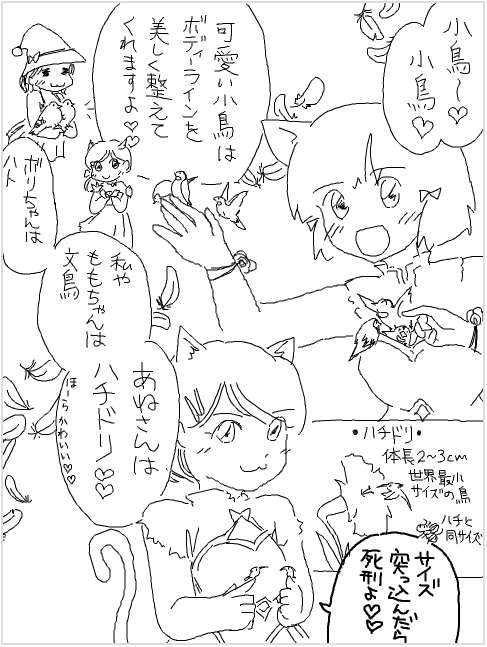 小鳥～♡
小鳥♡
可愛い小鳥は
ボディーラインを
美しく整えて
くれますよ♡♡
ボリちゃんは
ハト
私や
ももちゃんは
文鳥
あねさんは
ハチドリ♡♡
ほーらかわいい♡♡
・ハチドリ・
体長2～3cm
世界最小
サイズの鳥
ハチと
同サイズ
サイズ
突っ込んだら
死刑よ♡♡